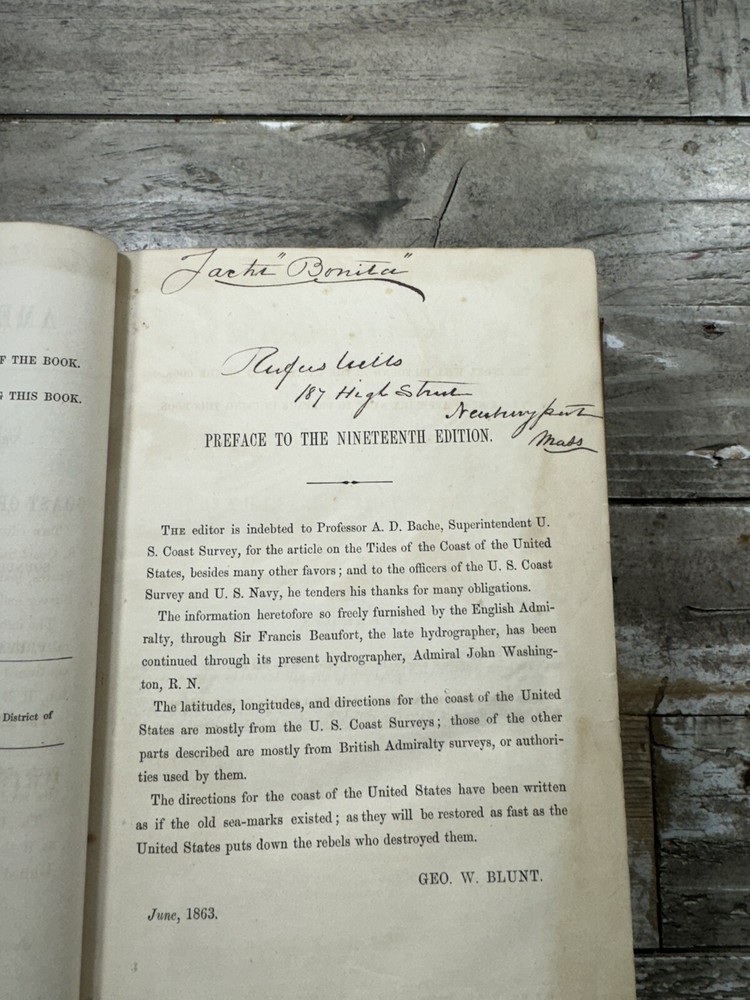 F THE BOOK.
THIS BOOK.
District of
Yacht "Bonita"
Rufus Wills
187 High Street
Newburyport
Mass
PREFACE TO THE NINETEENTH EDITION.
THE editor is indebted to Professor A. D. Bache, Superintendent U.
S. Coast Survey, for the article on the Tides of the Coast of the United
States, besides many other favors; and to the officers of the U. S. Coast
Survey and U. S. Navy, he tenders his thanks for many obligations.
The information heretofore so freely furnished by the English Admi-
ralty, through Sir Francis Beaufort, the late hydrographer, has been
continued through its present hydrographer, Admiral John Washing-
ton, R. N.
The latitudes, longitudes, and directions for the coast of the United
States are mostly from the U. S. Coast Surveys; those of the other
parts described are mostly from British Admiralty surveys, or authori-
ties used by them.
The directions for the coast of the United States have been written
as if the old sea-marks existed; as they will be restored as fast as the
United States puts down the rebels who destroyed them.
GEO. W. BLUNT.
June, 1863.
3